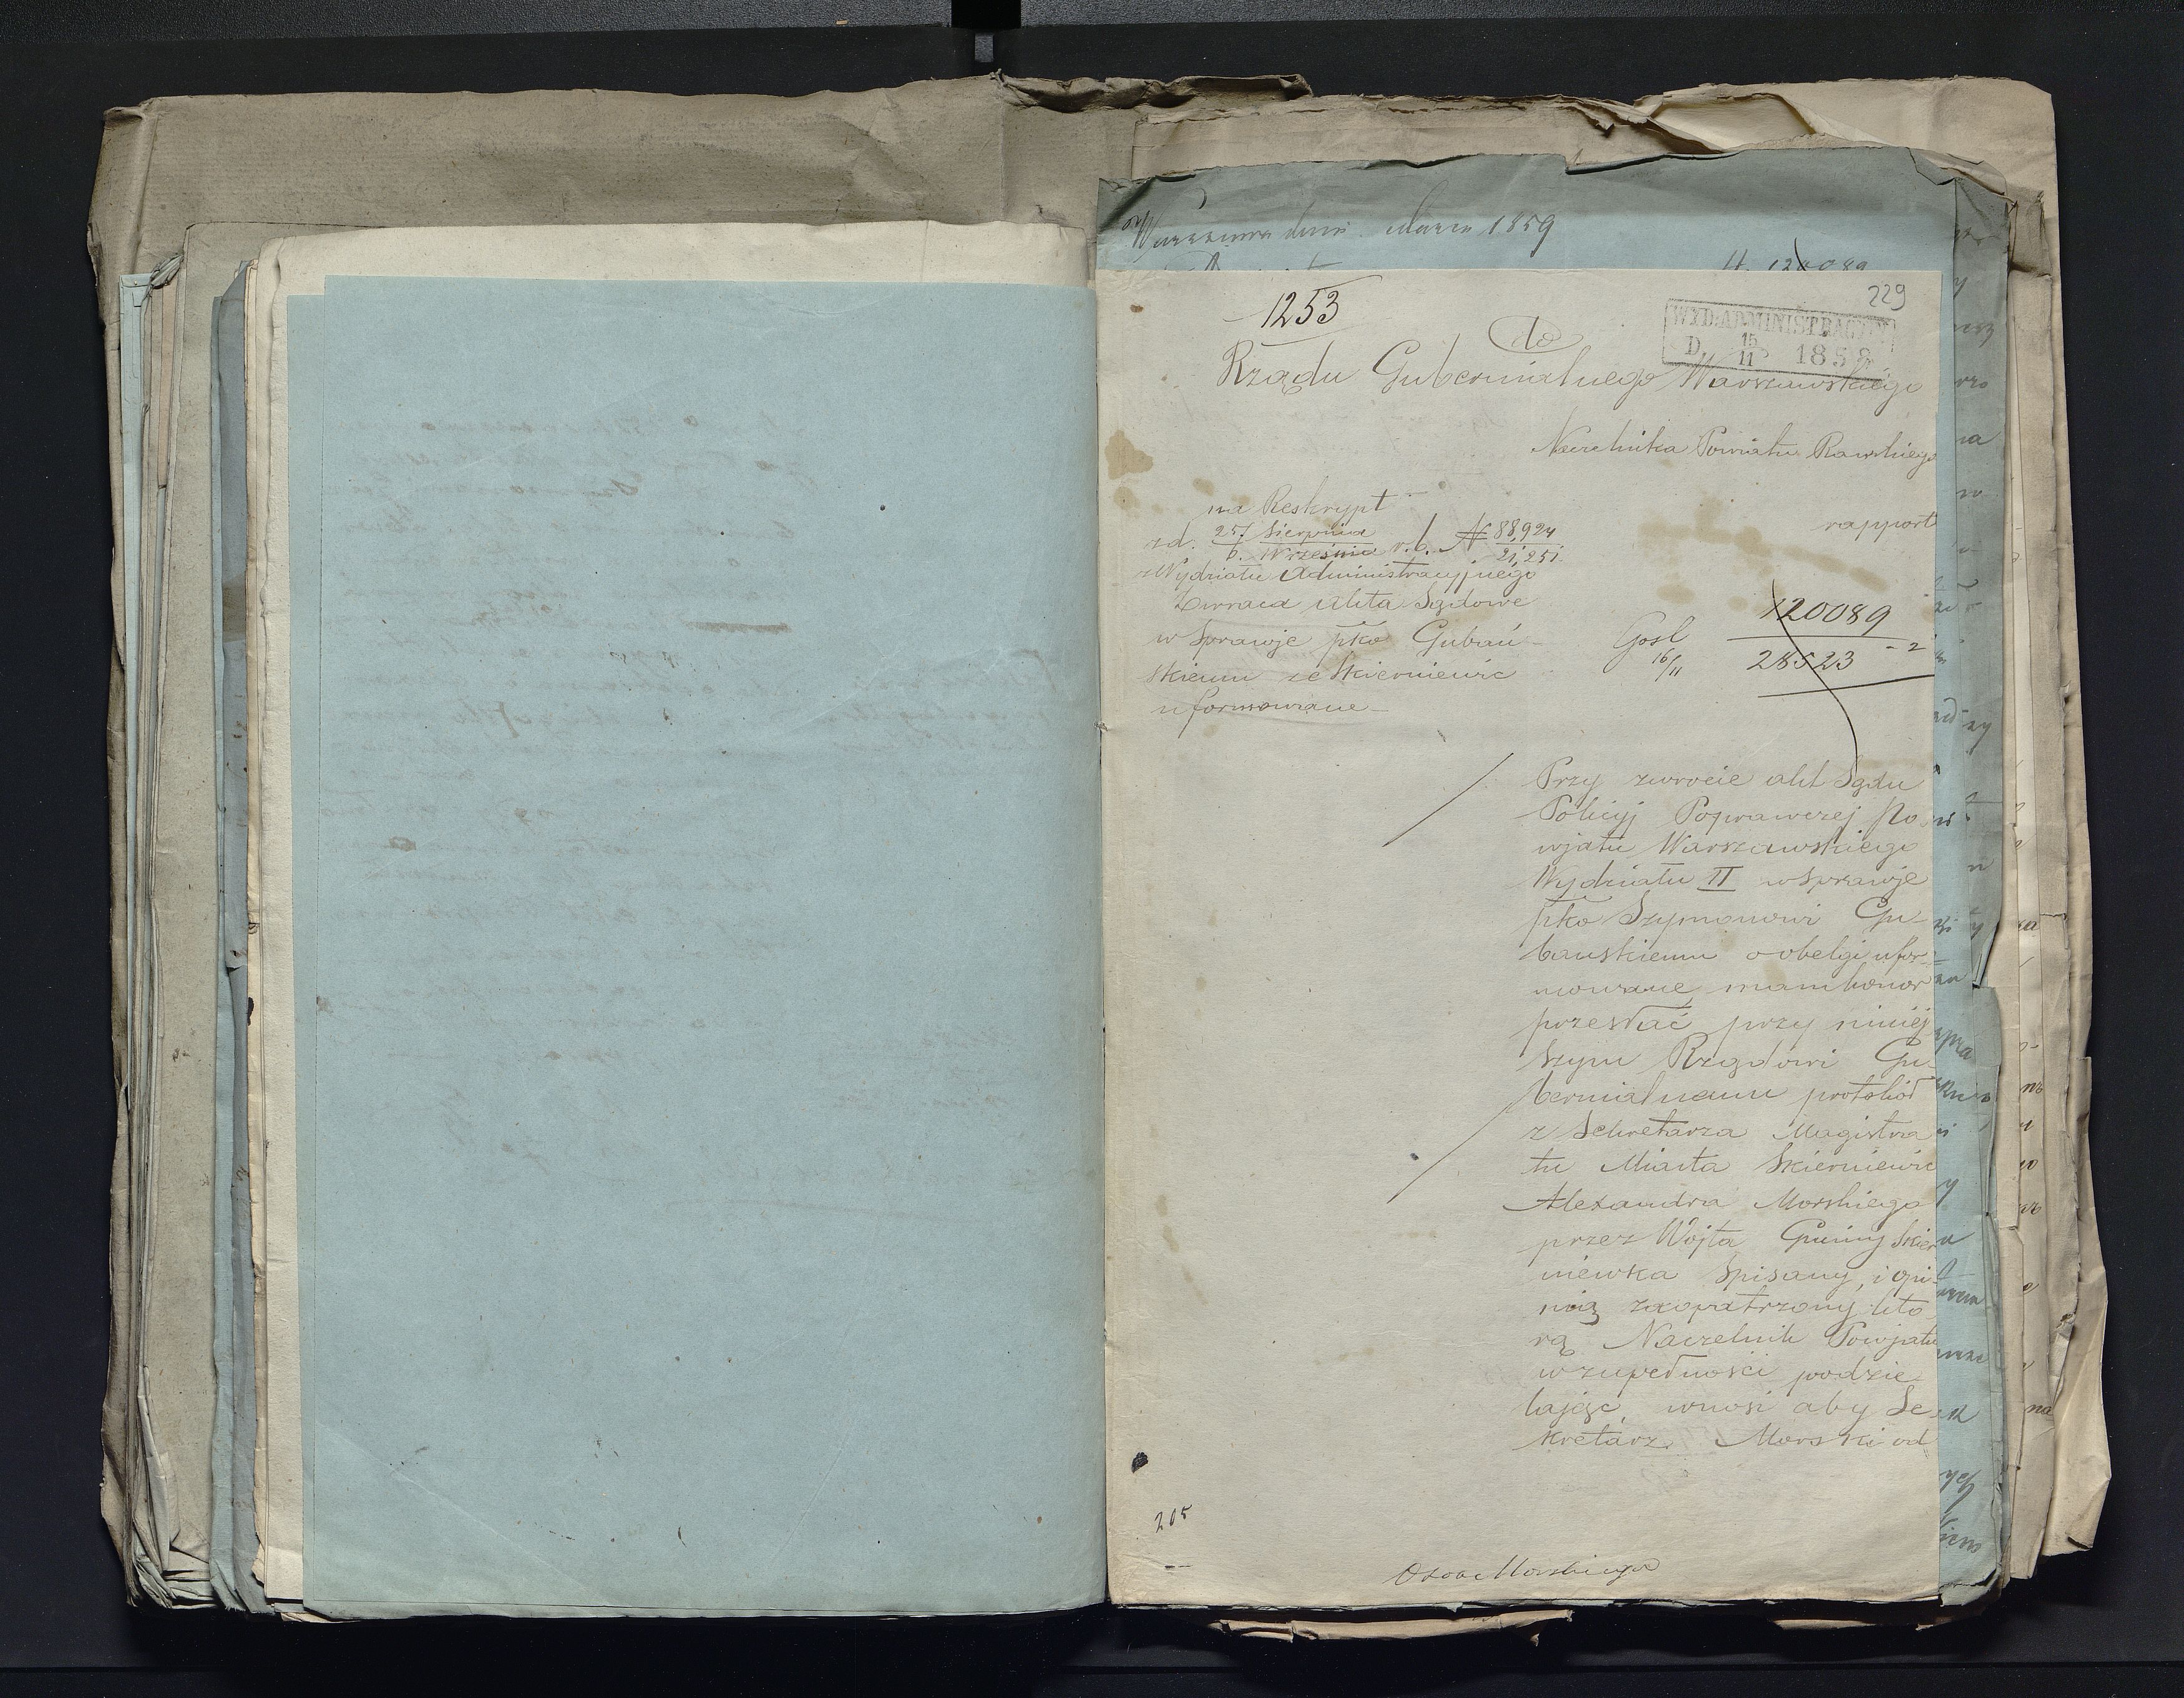 Warszawa dnia Marca 1859
229
1253
do
WYD. ADMINISTRACYJNY
D. 15/11 1858
Rządu Gubernialnego Warszawskiego
Naczelnika Powiatu Rawskiego
rapport
na Reskrypt
z d. 25/6 Sierpnia/Września r. b. N 88,924/21,251
z Wydziału Administracyjnego
Zwraca akta Sądowe
w sprawje pko Gubań-
skiemu ze Skierniewic
uformowane-
120089
28523 - 2
16/11
Przy zwrocie akt Sądu
Policyj Poprawczej Po
wjatu Warszawskiego
Wydziału II w sprawje
pko Szymonowi Gu-
banskiemu o obelgi ufor-
mowane, mam honor
przesłać przy niniej
szym Rządowi Gu-
bernialnemu protokół
z Sekretarza Magistra
tu Miasta Skierniewic
Alexandra Morskiego
przez Wójta Gminy Skier
niewka spisany, i opi-
nią zaopatrzony, kto
rą Naczelnik Powjatu
w zupełności podzie-
lając, wnosi aby Se-
kretarz Morski od
205
Morskiego